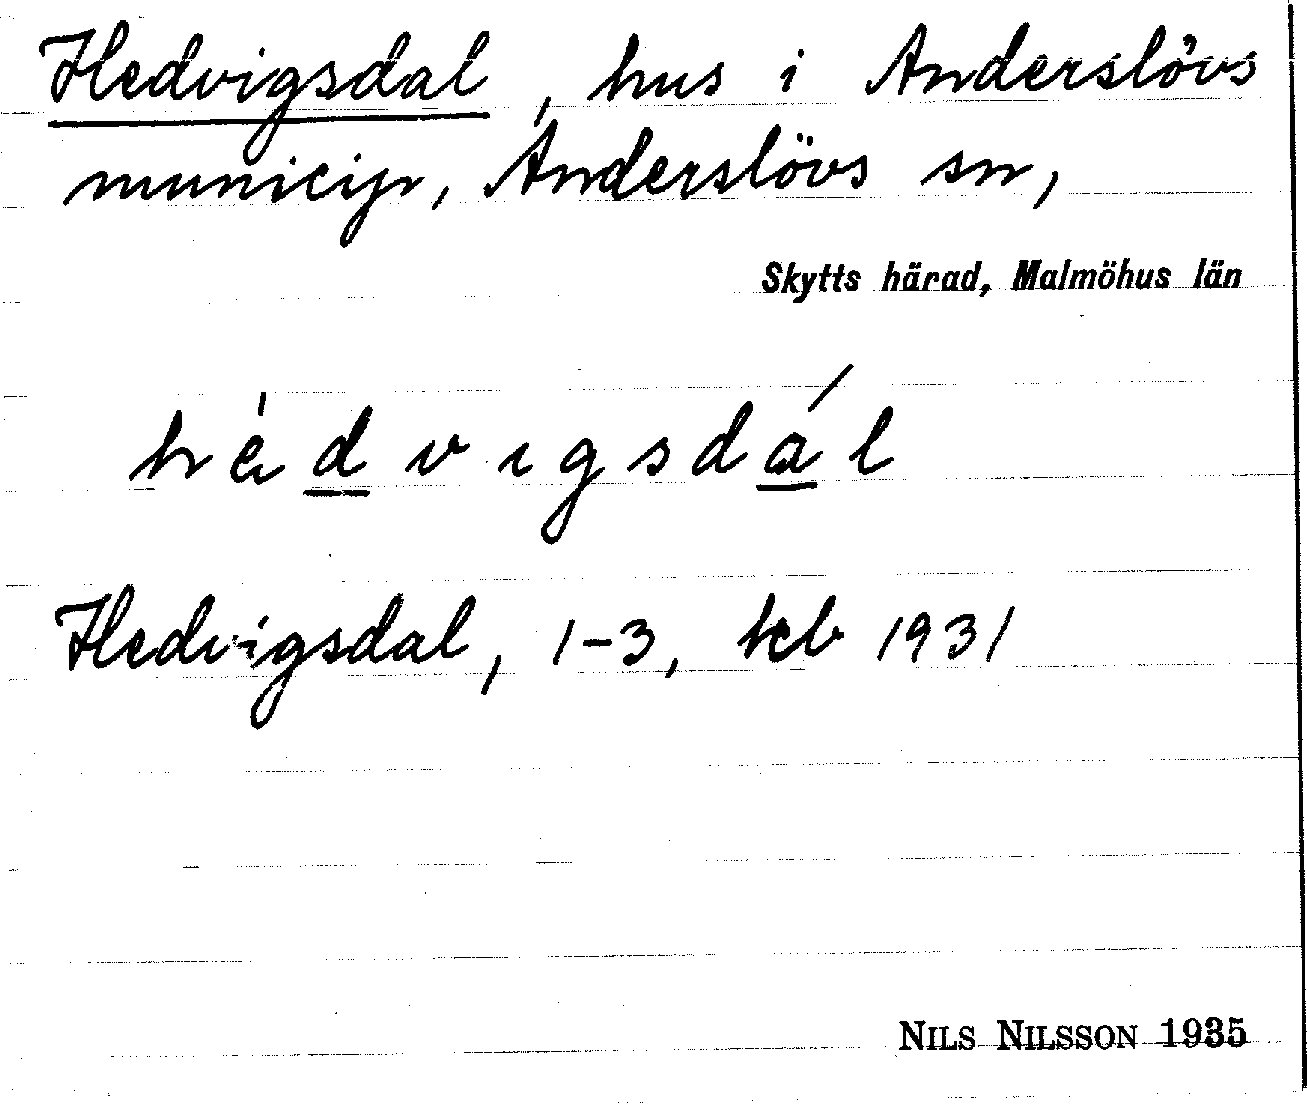 Hedvigsdal, hus i Anderslövs
municip, Anderslövs sn,
Skytts härad, Malmöhus län
hedvigsdál
Hedvigsdal, 1-3, kb 1931
NILS NILSSON 1935